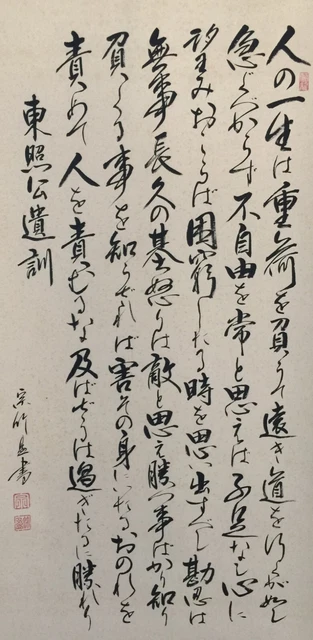 人の一生は重荷を負うて遠き道を行くが如し
急ぐべからず不自由を常と思えば不足なし心に
望みおこらば困窮したる時を思い出すべし勘忍は
無事長久の基怒りは敵と思え勝つ事ばかり知り
負くる事を知らざれば害その身にいたるおのれを
責めて人を責むるな及ばざるは過ぎたるに勝れり
東照公遺訓
書